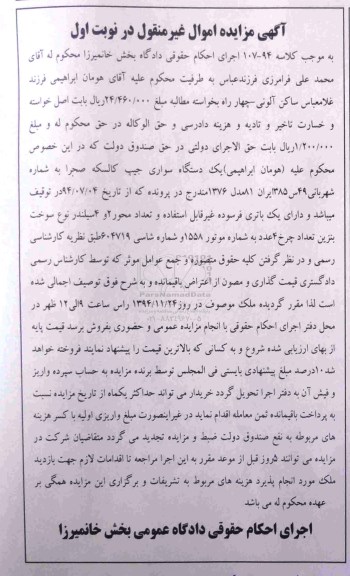 آگهی مزایده اموال غیرمنقول در نوبت اول
به موجب کلاسه ۹۴-۱۰۷ اجرای احکام حقوقی دادگاه بخش خانمیرزا محکوم له آقای
محمد علی فرامرزی فرزندعباس به طرفیت محکوم علیه آقای هومان ابراهیمی فرزند
غلامعباس ساکن آلونی-چهار راه بخواسته مطالبه مبلغ ۲۴/۴۶۰/۰۰۰ریال بابت اصل خواسته
و خسارت تاخیر و تادیه و هزینه دادرسی و حق الوکاله در حق محکوم له و مبلغ
۱/۲۰۰/۰۰۰ریال بابت حق الاجرای دولتی در حق صندوق دولت که در این خصوص
محکوم علیه (هومان ابراهیمی)یک دستگاه سواری جیپ کالسکه صحرا به شماره
شهربانی۴۹س۳۸۵ایران ۸۱مدل ۱۳۷۶مندرج در پرونده که از تاریخ ۹۴/۰۷/۰۴در توقیف
میباشد و دارای یک باتری فرسوده غیرقابل استفاده و تعداد محور۲و ۴سیلندر نوع سوخت
بنزین تعداد چرخ۴عدد به شماره موتور ۱۵۵۸و شماره شاسی ۶۰۴۷۱۹طبق نظریه کارشناسی
رسمی و در نظر گرفتن کلیه حقوق متصوره و جمع عوامل موثر که توسط کارشناس رسمی
دادگستری قیمت گذاری و مصون از اعتراض باقیمانده و به شرح فوق توصیف اجمالی شده
است لذا مقرر گردیده ملک موصوف در روز۱۳۹۴/۱۱/۲۴ راس ساعت ۹الی۱۲ ظهر در
محل دفتر اجرای احکام حقوقی با انجام مزایده عمومی و حضوری بفروش برسد قیمت پایه
از بهای ارزیابی شده شروع و به کسانی که بالاترین قیمت را پیشنهاد نمایند فروخته خواهد
شد۱۰درصد مبلغ پیشنهادی بایستی فی المجلس توسط برنده مزایده به حساب سپرده واریز
و فیش آن به دفتر اجرا تحویل گردد خریدار می تواند حداکثر یکماه از تاریخ مزایده نسبت
به پرداخت باقیمانده ثمن معامله اقدام نماید در غیراینصورت مبلغ واریزی اولیه با کسر هزینه
های مربوطه به نفع صندوق دولت ضبط و مزایده تجدید می گردد متقاضیان شرکت در
مزایده می توانند ۵روز قبل از موعد مقرر به این اجرا مراجعه تا اقدامات لازم جهت بازدید
ملک مورد انجام پذیرد هزینه های مربوط به تشریفات و برگزاری این مزایده همگی بر
عهده محکوم له می باشد
اجرای احکام حقوقی دادگاه عمومی بخش خانمیرزا